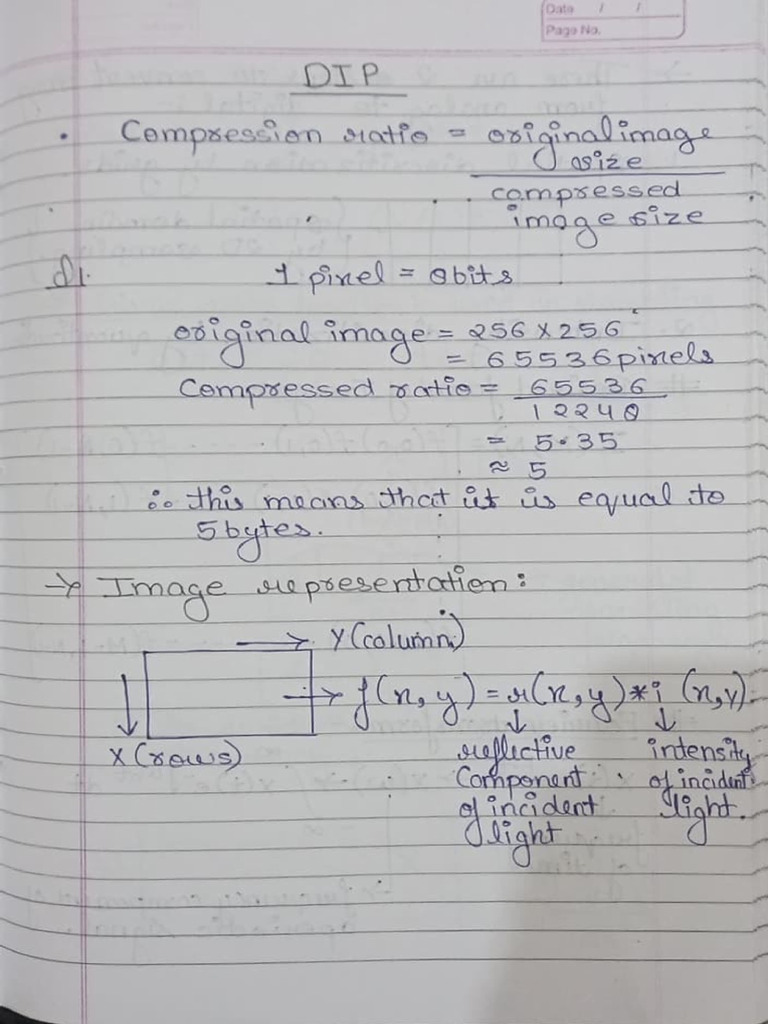 Date / /
Page No.
DIP
• Compression ratio = original image
size
compressed
image size
Q1. 1 pixel = 8bits
original image = 256 X 256
= 65536 pixels
Compressed ratio = 65536
12248
= 5.35
≈ 5
∴ this means that it is equal to
5 bytes.
→ Image representation:
→ Y (column)
→ f(x, y) = r(x, y) * i (x, y).
X (rows)
reflective intensity
Component of incident
of incident light.
light